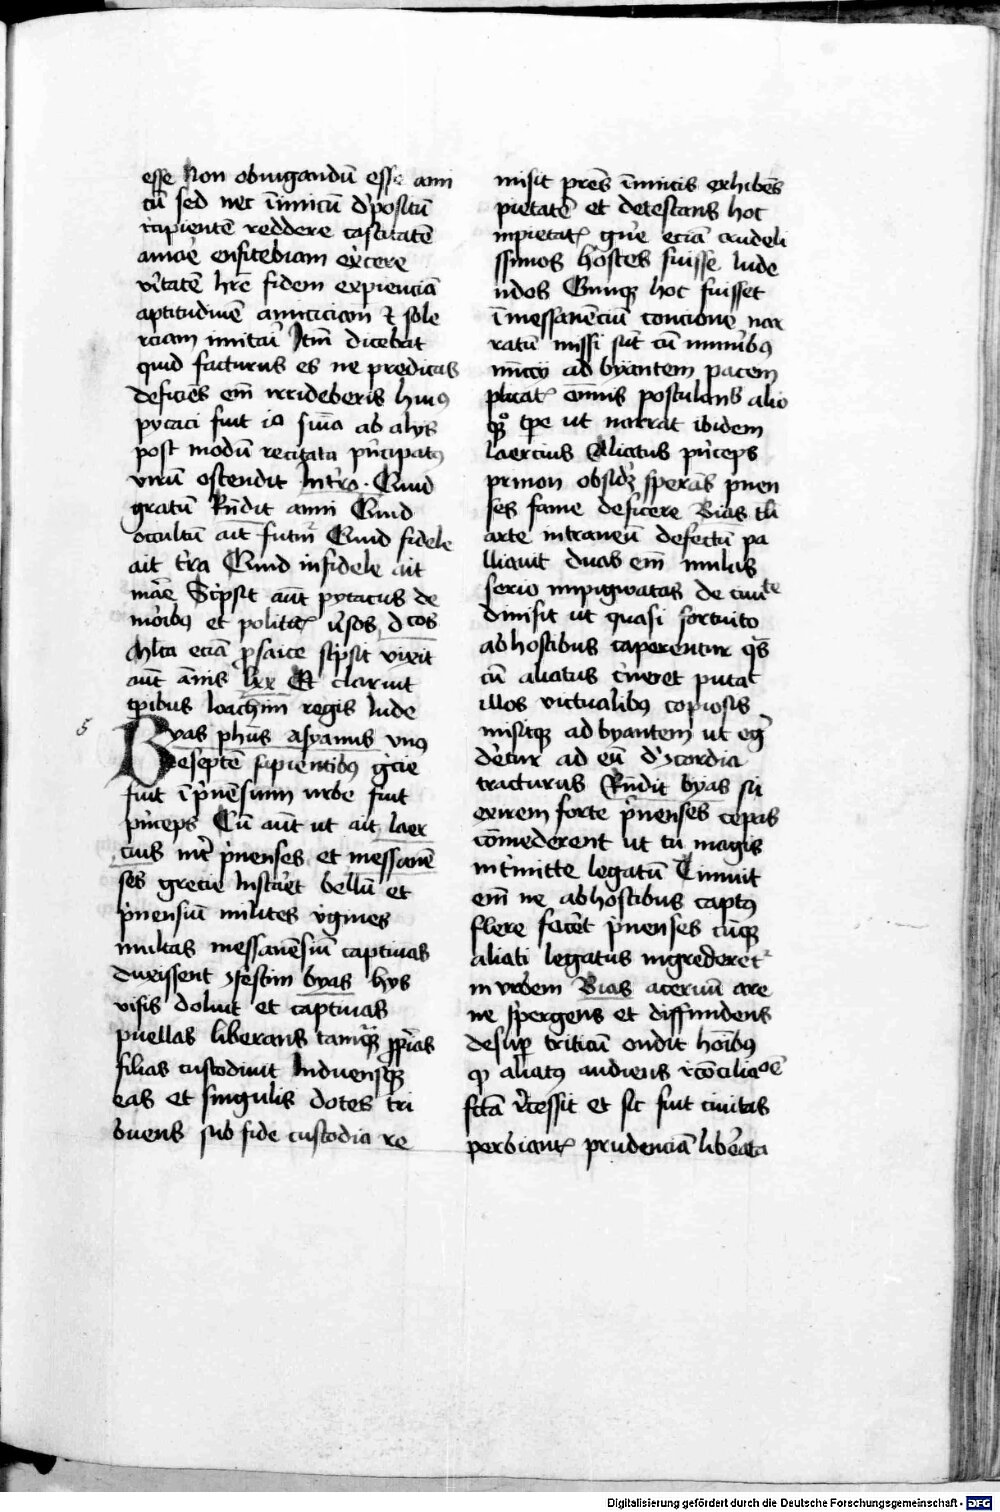 esse Non obiurgandū esse ami
cū sed nec īimicū d'positū
rcipientē reddere castitatē
amare ensitebiam ex'cere
v'itatē hr̄e fidem expienciā
aptitudinē amiciciam et sole
rciam imitari Itm̄ dicebat
quid facturus es ne predicas
deficiēs em̄ irrideberis huiꝰ
pytaci fuit is sn̄ia ab alys
post modū recitata pn̄cipatꝰ
virū ostendit Int'ro. Quid
gratū Rn̄dit amī Quid
occultū ait futurū Quid fidele
ait t'ra Quid infidele ait
mare Sc'psit aūt pytacus de
morib' et politicꝫ v'sos dctos
Mlta eciā prosaice sc'psit vixit
aūt ānis lxx Et claruit
tpibus Ioachim regis Iude
5
Byas phūs asyanus vnꝰ
de septē sapientibꝰ grecie
fuit ī prīnēsium urbe fuit
pn̄ceps Cū aūt ut ait laer
cius int' p'nenses et messanē
ses grecie Insta'et bellū et
p'nensiū milites v'gines
multas messanēsiū captiuas
duxissent ꝯfestim byas hys
visis doluit et captiuas
puellas liberans tamqꝫ ꝓp'ias
filias custodiuit Induensqꝫ
eas et singulis dotes tri
buens sub fide custodia re
misit prēs īmitis exhibēs
pietatē et detestans hoc
inpietatꝫ que eciā crudeli
ssimos hostes fuisse lude
ndos Cumqꝫ hoc fuisset
ī messanēciū concione nar
ratū missi sūt cū munibꝰ
nūcij ad byantem pacem
placatꝫ om̄is postulans alio
qꝫ tpe ut narrat ibidem
laercius Aliatus pn̄ceps
prinon obsidꝫ sperās pnen
ses fame deficere Bias tli
arte intraneū defectū pa
lliauit duas em̄ mulas
serio inpigwatas de ciuite
dimisit ut quasi fortuito
ab hostibus caperentur qs̄
cū aliatus c'neret putat
illos victualibꝰ copiosis
misitqꝫ ad byantem ut eg'
d'etur ad eū d' ꝯcordia
tracturus Rn̄dit byas si
exirem forte p'nenses cepas
cōmederent ut tu magis
int'mitte legatū Timuit
em̄ ne ab hostibus captꝰ
flere facēt p'nenses cūqꝫ
aliati legatus ingrederetꝰ
in vrbem Bias aceruū are
ne sp'gens et diffundens
desup' triticū ondit hoībꝰ
qꝫ aliatꝰ audiens rcōciliaoē
fctā rcessit et sic fuit ciuitas
per biantꝫ prudenciā lib'eata
Digitalisierung gefördert durch die Deutsche Forschungsgemeinschaft - DFG